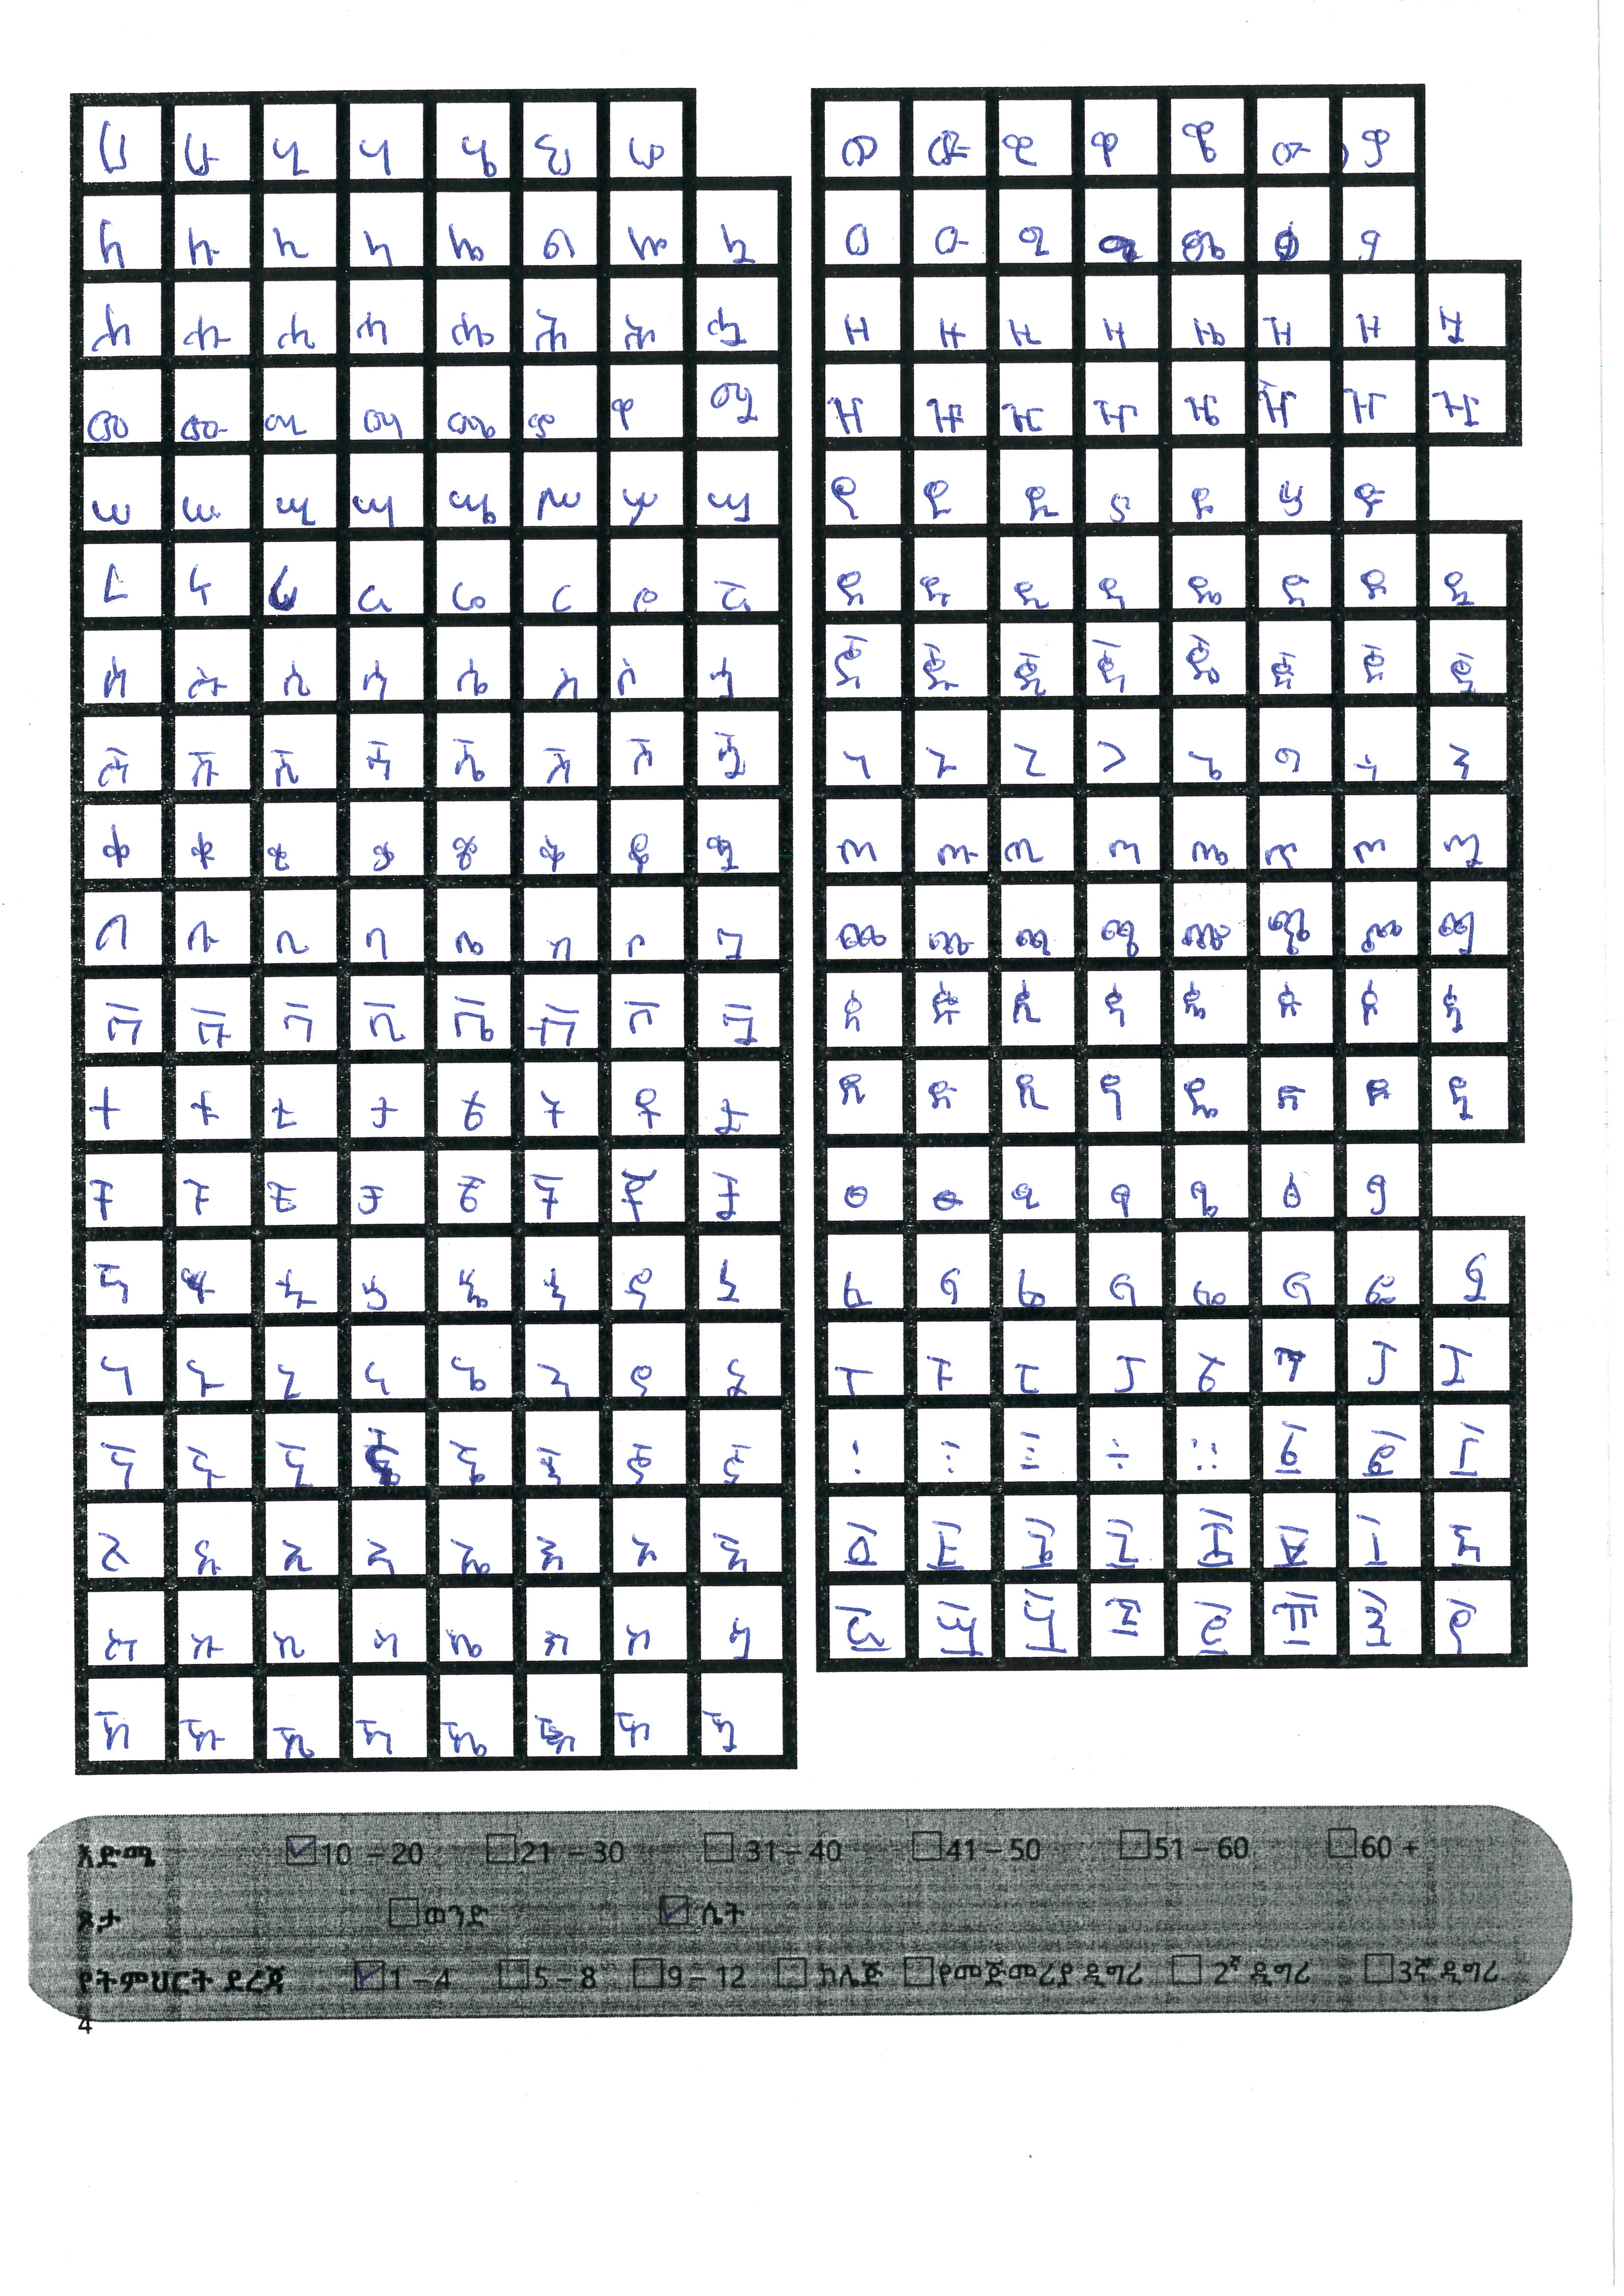 ሀ ሁ ሂ ሃ ሄ ህ ሆ
ለ ሉ ሊ ላ ሌ ል ሎ ሏ
ሐ ሑ ሒ ሓ ሔ ሕ ሖ ሗ
መ ሙ ሚ ማ ሜ ም ሞ ሟ
ሠ ሡ ሢ ሣ ሤ ሥ ሦ ሧ
ረ ሩ ሪ ራ ሬ ር ሮ ሯ
ሰ ሱ ሲ ሳ ሴ ስ ሶ ሷ
ሸ ሹ ሺ ሻ ሼ ሽ ሾ ሿ
ቀ ቁ ቂ ቃ ቄ ቅ ቆ ቋ
በ ቡ ቢ ባ ቤ ብ ቦ ቧ
ተ ቱ ቲ ታ ቴ ት ቶ ቷ
ቸ ቹ ቺ ቻ ቼ ች ቾ ቿ
ነ ኑ ኒ ና ኔ ን ኖ ኗ
ኘ ኙ ኚ ኜ ኝ ኞ ኟ
አ ኡ ኢ ኣ ኤ እ ኦ ኧ
ከ ኩ ኪ ካ ኬ ክ ኮ ኳ
ኸ ኹ ኺ ኻ ኼ ኽ ኾ
ወ ዉ ዊ ዋ ዌ ው ዎ
ዐ ዑ ዒ ዔ ዕ ዖ
ዘ ዙ ዚ ዛ ዜ ዝ ዞ ዟ
ዠ ዡ ዢ ዣ ዤ ዥ ዦ ዧ
የ ዩ ዪ ያ ዬ ይ ዮ
ደ ዱ ዲ ዳ ዴ ድ ዶ ዷ
ጀ ጁ ጂ ጃ ጄ ጅ ጆ ጇ
ገ ጉ ጊ ጋ ጌ ግ ጎ ጓ
ጠ ጡ ጢ ጣ ጤ ጥ ጦ ጧ
ጨ ጩ ጪ ጫ ጬ ጭ ጮ ጯ
ጰ ጱ ጲ ጳ ጴ ጵ ጶ ጷ
ጸ ጹ ጺ ጻ ጼ ጽ ጾ ጿ
ፀ ፁ ፂ ፃ ፄ ፅ ፆ
ፈ ፉ ፊ ፋ ፌ ፍ ፎ ፏ
ፐ ፑ ፒ ፓ ፔ ፕ ፖ ፗ
፡ ፤ ፧ ፥ ። ፩ ፪ ፫
፬ ፭ ፮ ፯ ፰ ፱ ፲ ፳
፴ ፵ ፶ ፷ ፸ ፹ ፺ ፻
እድሜ 10 – 20 21 – 30 31 – 40 41 – 50 51 – 60 60 +
ጾታ ወንድ ሴት
የትምህርት ደረጃ 1 – 4 5 – 8 9 – 12 ኮሌጅ የመጀመሪያ ዲግሪ 2ኛ ዲግሪ 3ኛ ዲግሪ
4